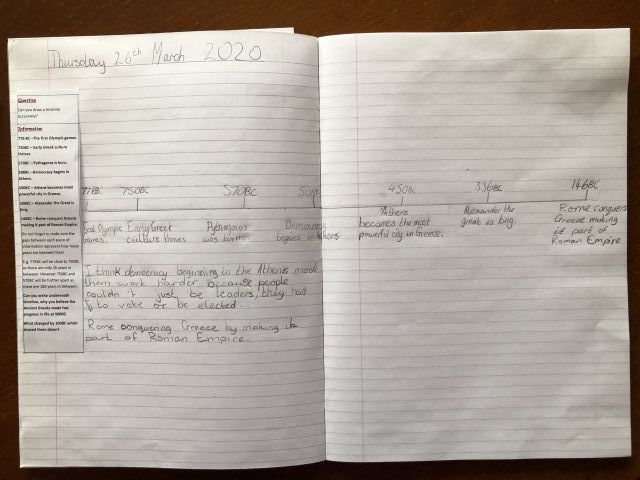 Thursday 26th March 2020
Question
Can you draw a timeline
accurately?
Information
776 BC – The first Olympic games.
750BC – Early Greek culture
thrives.
570BC – Pythagoras is born.
508BC – Democracy begins in
Athens.
450BC – Athens becomes most
powerful city in Greece.
336BC – Alexander the Great is
king.
146BC – Rome conquers Greece
making it part of Roman Empire.
Do not forget to make sure the
gaps between each piece of
information represent how many
years are between them!
E.g. 776BC will be close to 750BC
as there are only 26 years in
between. However 750BC and
570BC will be further apart as
there are 180 years in between.
Can you write underneath
timeline, why you believe the
Ancient Greeks made fast
progress in life at 500BC.
What changed by 100BC which
slowed them down?
750BC
570BC
450BC
336BC
146BC
Olympic
games.
Early Greek
culture thrives
Pythagoras
was born
Democracy
begins in Athens
Athens
becomes the most
powerful city in Greece.
Alexander the
great is king.
Rome conquers
Greece making
it part of
Roman Empire
I think democracy beginning in the Athens made
them work harder because people
couldn't just be leaders, they had
to vote or be elected.
Rome conquering Greece by making it
part of Roman Empire.